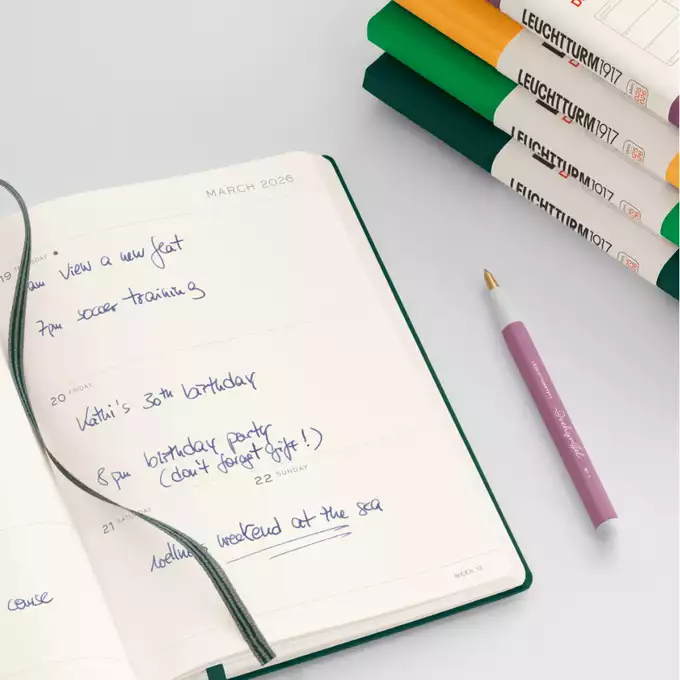 MARCH 2026
19
am view a new flat
7pm soccer training
20 FRIDAY
Kathi's 30th birthday
8pm birthday party
(don't forget gift!)
22 SUNDAY
21
weekend at the sea
WEEK 12
course
LEUCHTTURM1917
LEUCHTTURM1917
LEUCHTTURM1917
LEUCHTTURM1917